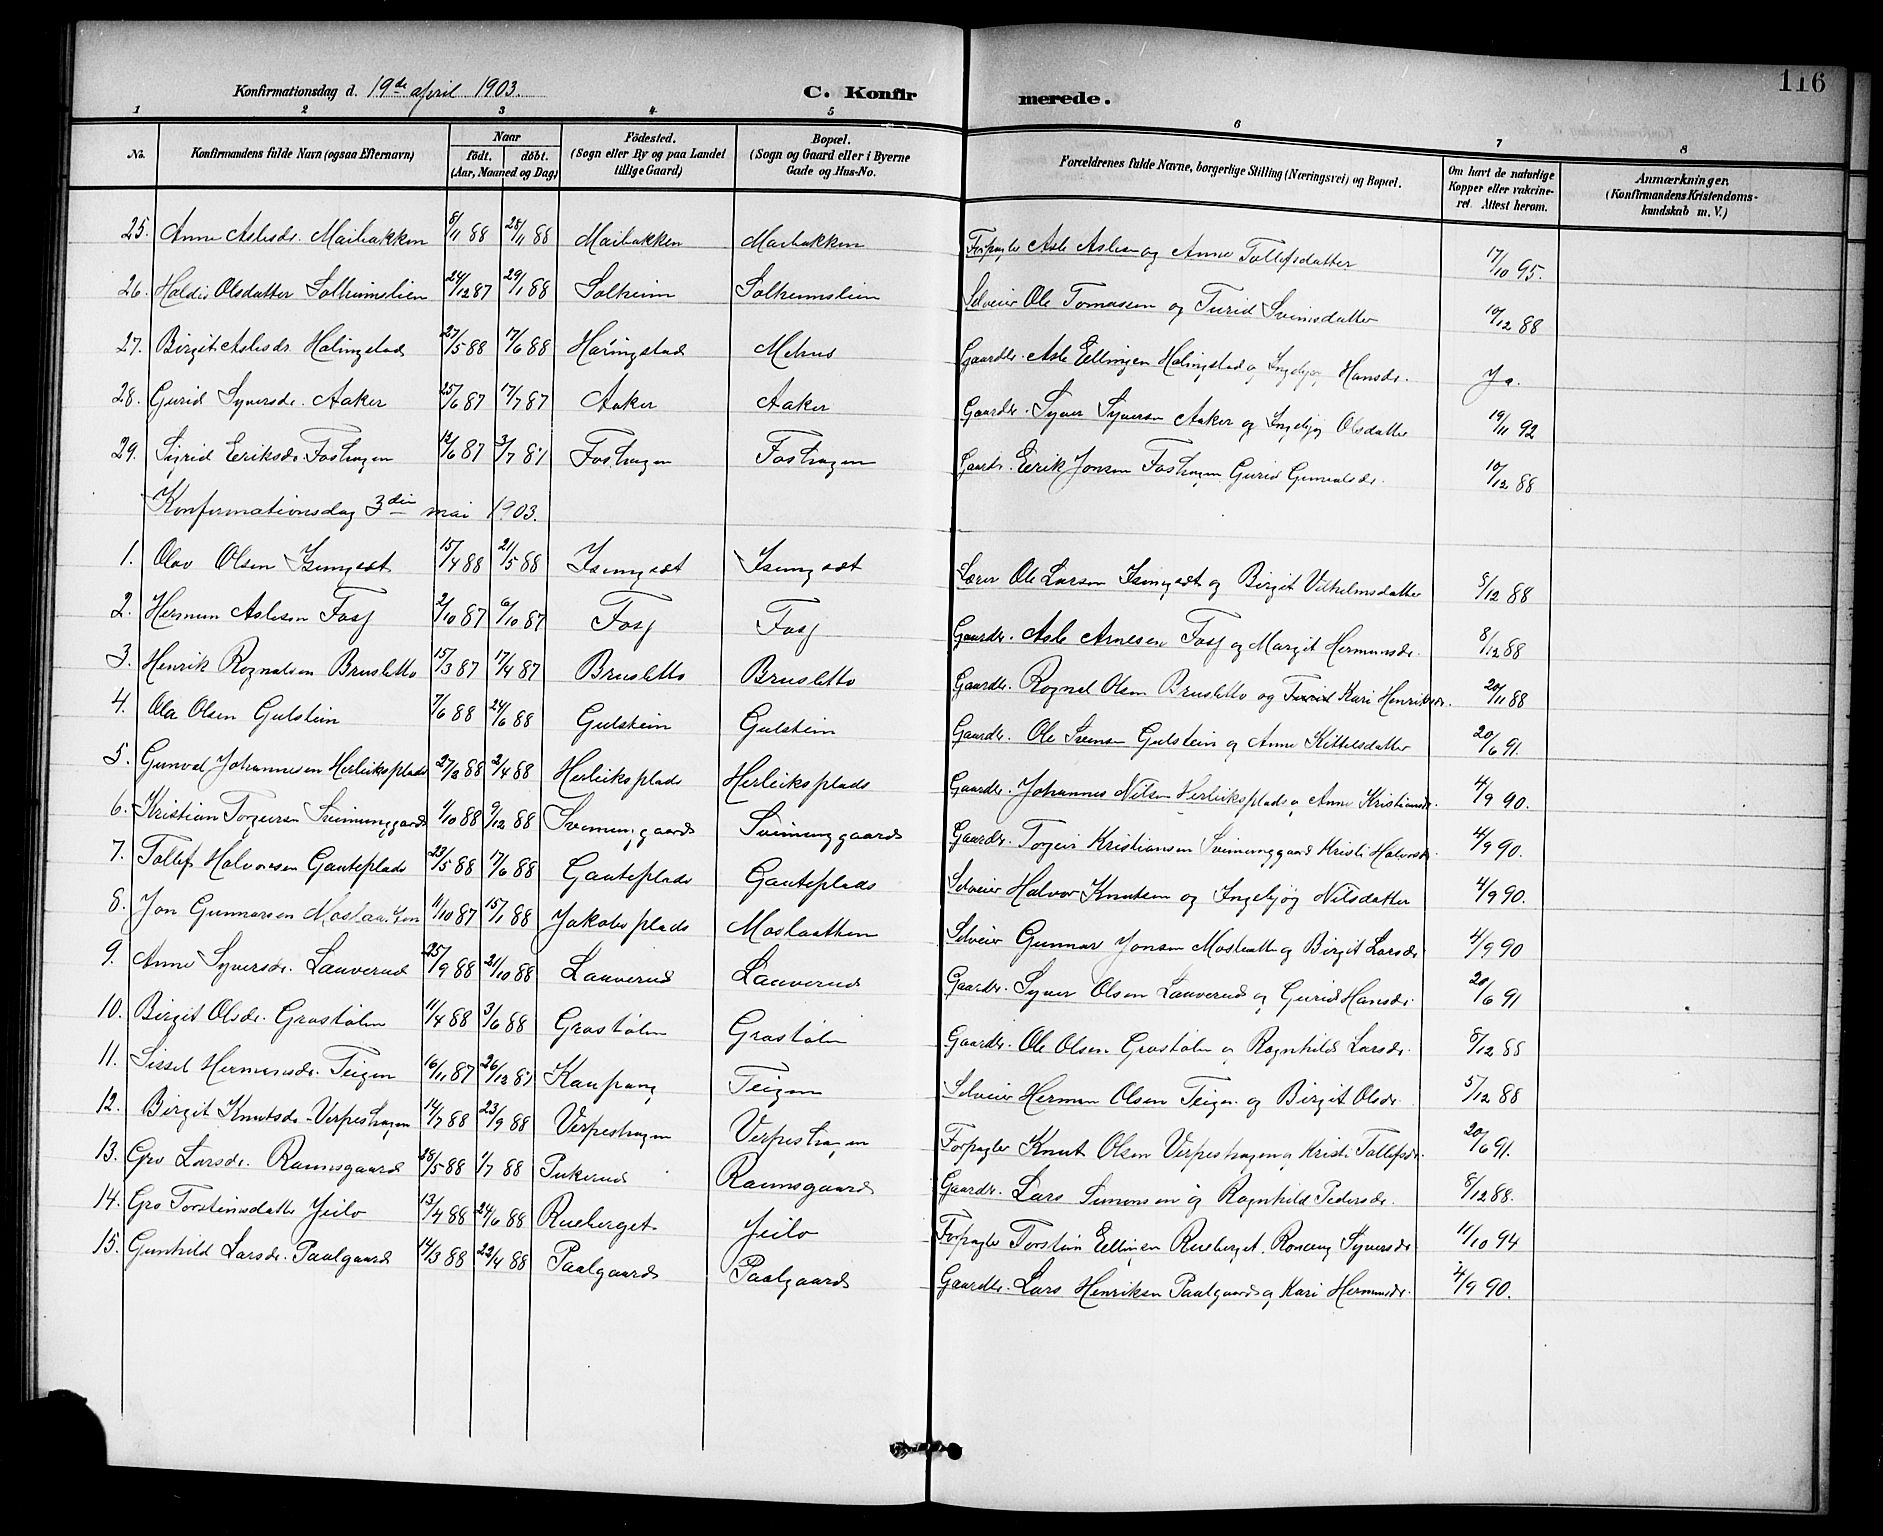 116
Konfirmationsdag d. 19de april 1903. C. Konfir merede.
1 2 3 4 5 6 7 8
No. Konfirmandens fulde Navn (ogsaa Efternavn) Naar født. døbt. (Aar, Maaned og Dag) Fødested. (Sogn eller By og paa Landet tillige Gaard) Bopæl. (Sogn og Gaard eller i Byerne Gade og Hus-No. Forældrenes fulde Navne, borgerlige Stilling (Næringsvei) og Bopæl. Om havt de naturlige Kopper eller vakcineret. Attest herom. Anmærkninger. (Konfirmandens Kristendomskundskab m. V.)
25. Anne Aslesdr. Maibakken 8/11 88 28/11 88 Maibakken Maibakken Forpagter Asle Aslesen og Anne Tollefsdatter 17/10 95.
26. Haldis Olsdatter Solheimslien 24/12 87 29/1 88 Solheim Solheimslien Selveier Ole Tomassen og Turid Svensdatter 10/12 88
27. Birgit Aslesdr. Halingstad 27/5 88 17/6 88 Haringstad Mehus Gaardbr. Asle Ellingsen Halingstad og Ingebjør Hansdr. Ja.
28. Gurid Syversdr. Aaker 25/6 87 17/7 87 Aaker Aaker Gaardbr. Syver Syversen Aaker og Ingebjør Olsdatter 19/11 92
29. Sigrid Eriksdr. Foshagen 12/6 87 3/7 87 Foshagen Foshagen Gaardbr. Eerik Jonsen Foshagen Gurid Gunvalsdr. 10/12 88
Konfirmationsdag 3die mai 1903.
1. Olav Olsen Isungset 15/4 88 21/5 88 Isungset Isungset Lærer Ole Larsen Isungset og Birgit Vilhelmsdatter 5/12 88
2. Hermun Aslesen Fosj 2/10 87 6/10 87 Fosj Fosj Gaardbr. Asle Arnesen Fosj og Margit Hermunsdr. 8/12 88
3. Henrik Rognalsen Brusletto 15/3 87 17/4 87 Brusletto Brusletto Gaardbr. Rognal Olsen Brusletto og Turid Kari Henriksdr. 20/11 88
4. Ola Olsen Gulstein 7/6 88 24/6 88 Gulstein Gulstein Gaardbr. Ole Svensen Gulstein og Anne Kittelsdatter 20/6 91.
5. Gunval Johannesen Herleiksplads 27/2 88 2/4 88 Herleiksplads Herleiksplads Gaardbr. Johannes Nilsen Herleiksplads og Anne Kristiansdr. 4/9 90.
6. Kristian Torgeirsen Sveinunggaard 1/10 88 9/12 88 Sveinunggaard Sveinunggaard Gaardbr. Torgeir Kristiansen Sveinunggaard Kristi Halvorsdr. 4/9 90.
7. Tollef Halvorsen Gauteplads 23/5 88 17/6 88 Gauteplads Gauteplads Selveier Halvor Knutsen og Ingebjør Nilsdatter 4/9 90.
8. Jon Gunnarsen Moslaatten 11/10 87 15/1 88 Jakobsplads Moslaatten Selveier Gunnar Jonsen Moslaatt og Birgit Larsdr 4/9 90
9. Anne Syversdr. Lauverud 25/9 88 21/10 88 Lauverud Lauverud Gaardbr. Syver Olsen Lauverud og Gurid Hansdr. 20/6 91
10. Birgit Olsdr. Grostølen 11/4 88 3/6 88 Grostølen Grostølen Gaardbr. Ole Olsen Grostølen og Rognhild Larsdr. 8/12 88
11. Sissel Hermunsdr. Teigen 16/11 87 26/12 87 Kaupang Teigen Selveier Hermun Olsen Teigen og Birgit Olsdr. 5/12 88
12. Birgit Knutsdr. Verpeshagen 14/7 88 23/9 88 Verpeshagen Verpeshagen Forpagter Knut Olsen Verpeshagen og Kristi Tollefsdr. 20/6 91.
13. Gro Larsdr. Raunsgaard 28/5 88 1/7 88 Pukerud Raunsgaard Gaardbr. Lars Simonsen og Rognhild Pedersdr. 8/12 88.
14. Gro Torsteinsdatter Jeilo 13/4 88 24/6 88 Rueberget Jeilo Forpagter Torstein Ellingsen Rueberget. Ronaug Syversdr 11/10 94
15. Gunhild Larsdr. Paalgaard 14/3 88 22/4 88 Paalgaard Paalgaard Gaardbr. Lars Henriksen Paalgaard og Kari Hermunsdr. 4/9 90.